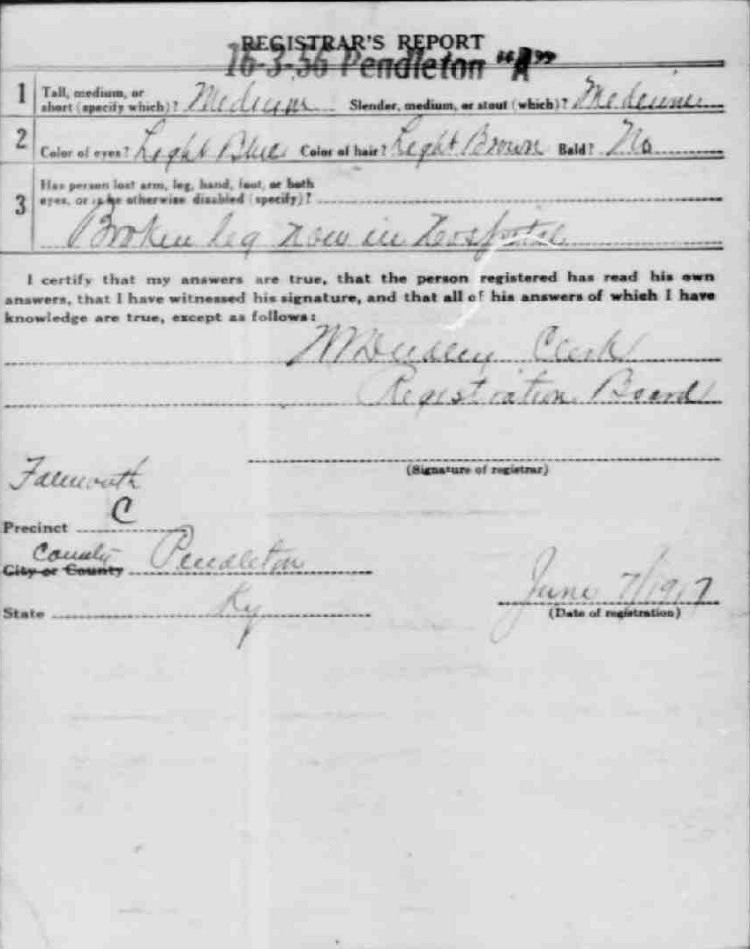 REGISTRAR'S REPORT
16-3-56 Pendleton "A"
1 Tall, medium, or short (specify which)? Medium Slender, medium, or stout (which)? Medium
2 Color of eyes? Light Blue Color of hair? Light Brown Bald? No
3 Has person lost arm, leg, hand, foot, or both
eyes, or is he otherwise disabled (specify)?
Broken leg now in Hospital
I certify that my answers are true, that the person registered has read his own
answers, that I have witnessed his signature, and that all of his answers of which I have
knowledge are true, except as follows:
Dudley Clerk
Registration Board
(Signature of registrar)
Falmouth
Precinct C
County
City or County Pendleton
State Ky
June 7/1917
(Date of registration)